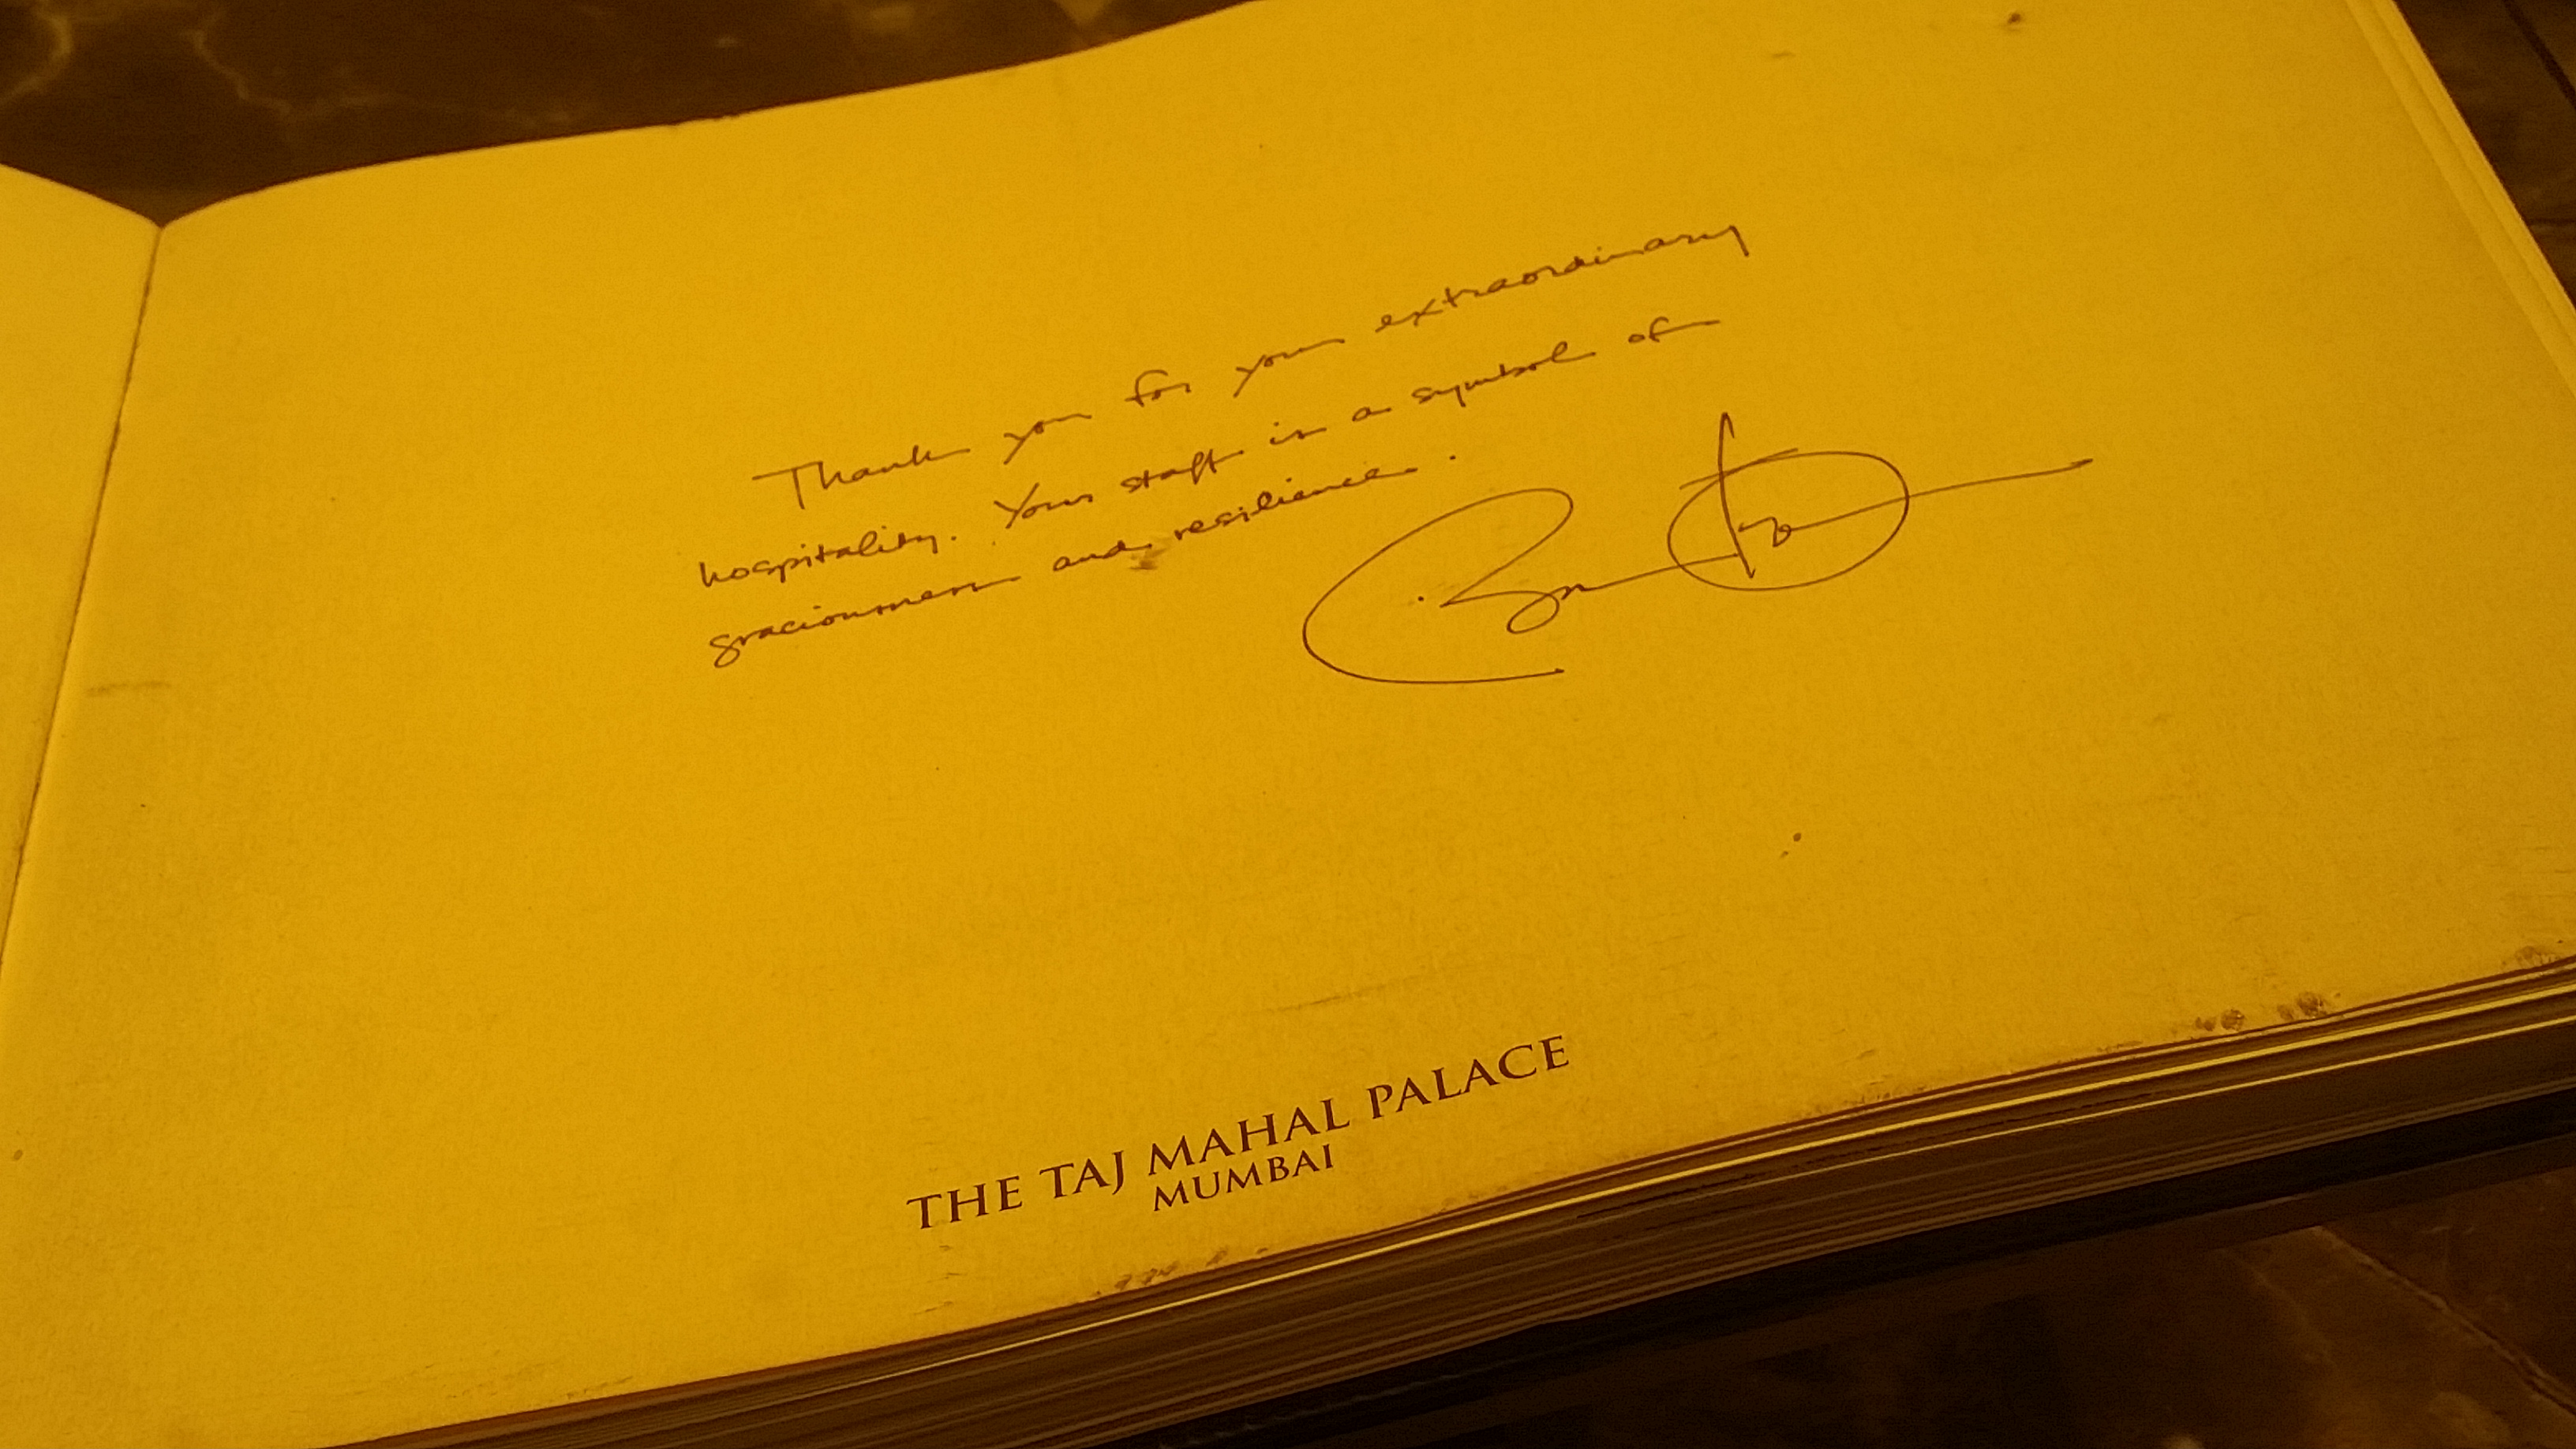 Thank you for your extraordinary
hospitality. Your staff is a symbol of
graciousness and resilience.
THE TAJ MAHAL PALACE
MUMBAI